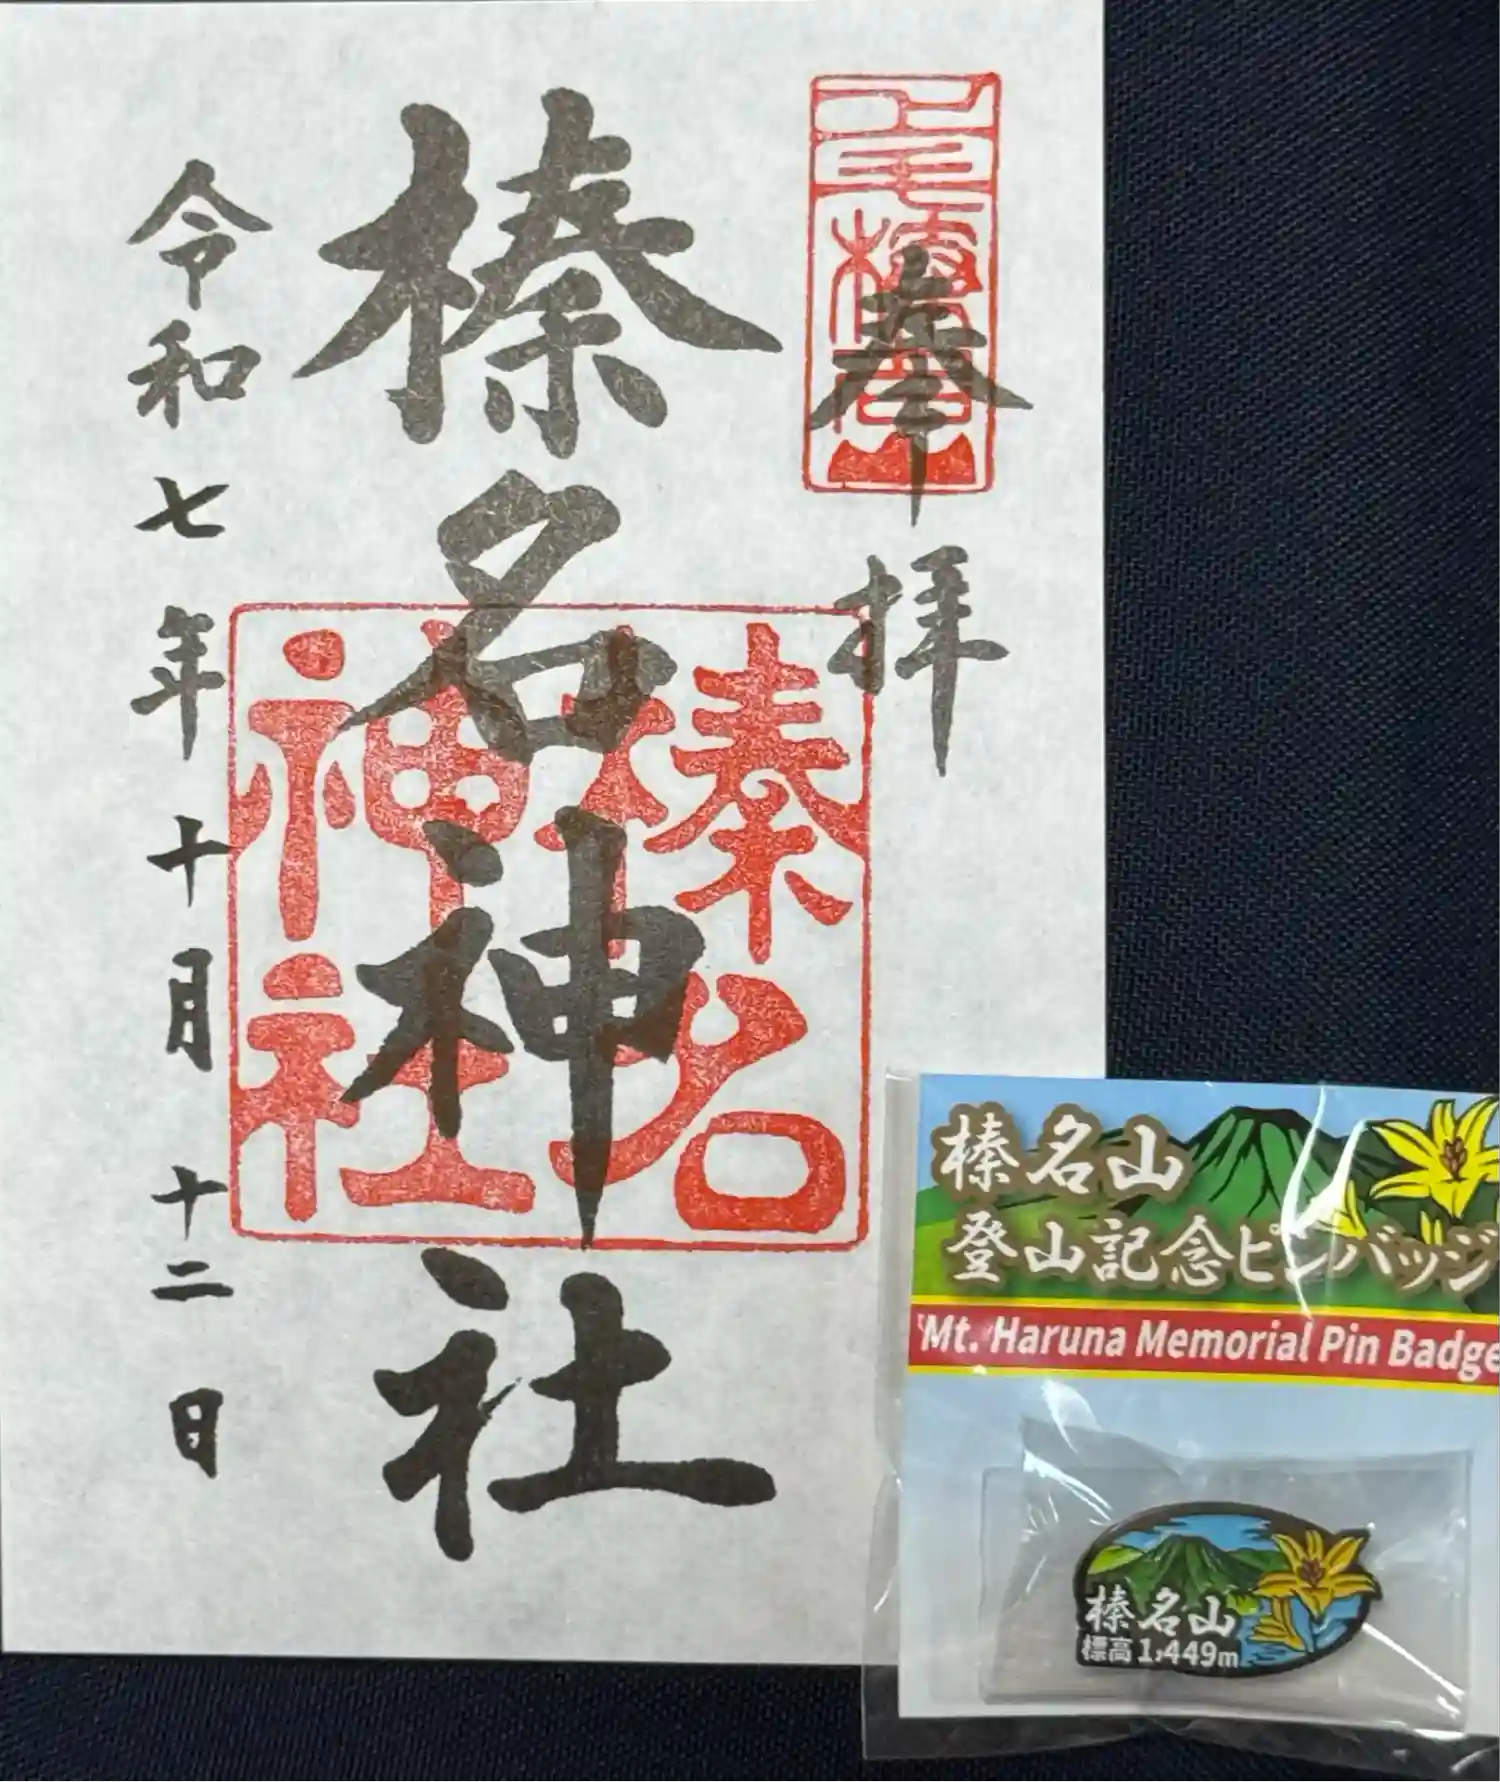 奉拝
榛名神社
榛名神社
令和七年十月十二日
榛名山
登山記念ピンバッジ
Mt. Haruna Memorial Pin Badge
榛名山
標高1,449m